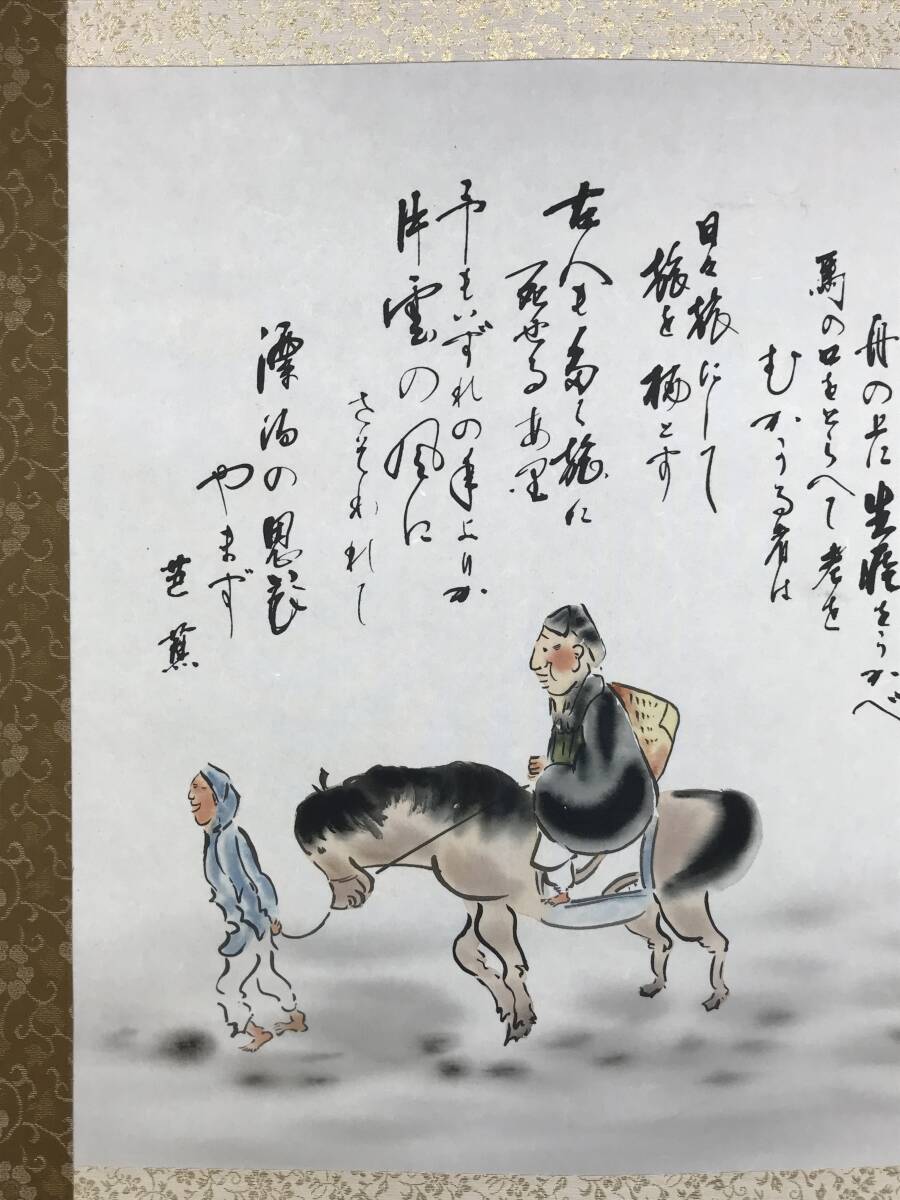 舟の上に生涯をうかべ
馬の口をとらへて老を
むかうる者は
日々旅にして
旅を栖とす
古人も多く旅に
死せるあり
予もいずれの年よりか
片雲の風に
さそわれて
漂泊の思ひ
やまず
芭蕉